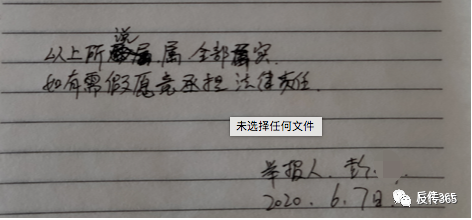 以上所说属全部属实.
如有需假愿竟承担法律责任.
未选择任何文件
举报人. 彭
2020. 6. 7日
反传365